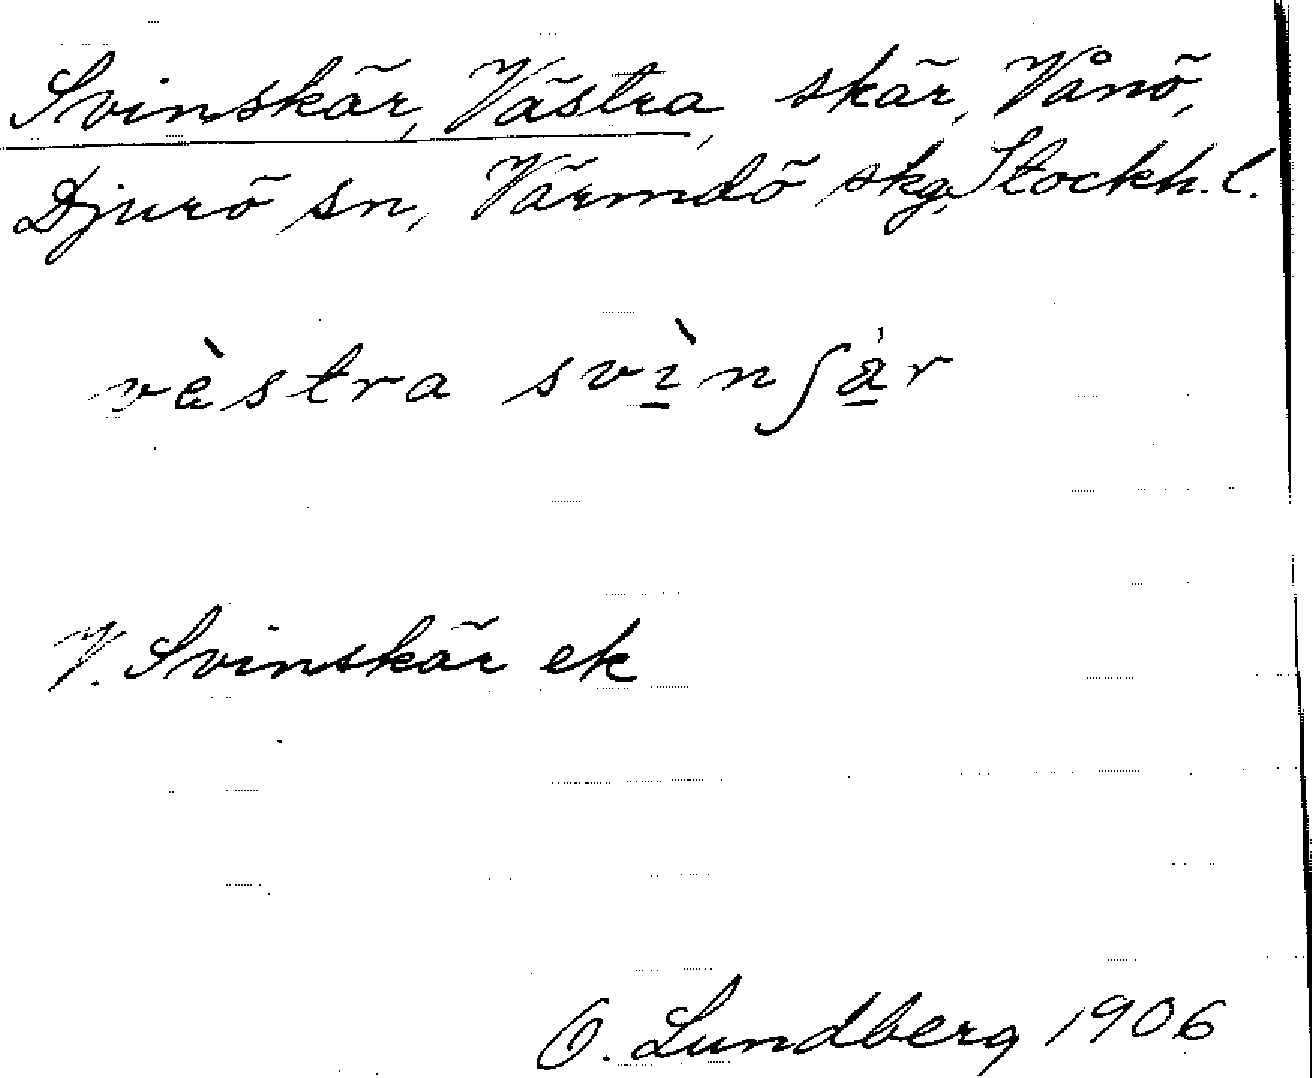 Svinskär, Västra, skär, Vånö,
Djurö sn, Värmdö skg, Stockh. l.
vèstra svì̱nʃa̱̍r
V. Svinskär ek
O. Lundberg 1906